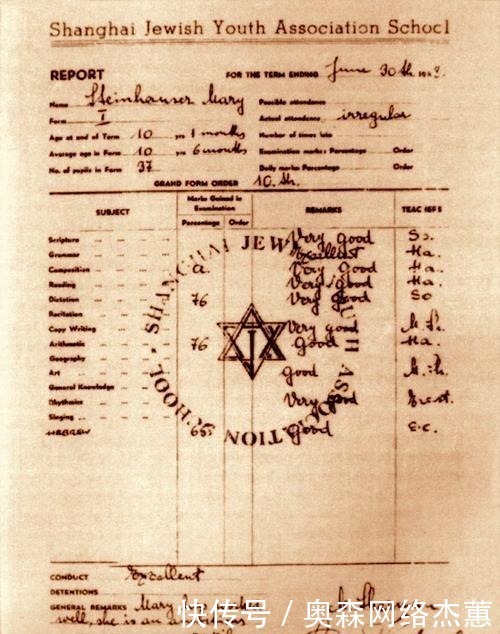 Shanghai Jewish Youth Association School
REPORT
FOR THE TERM ENDING June 30th.
Name Steinhauser Mary
Possible attendance
Form I
Actual attendance irregular
Age at end of Term 10 yrs 1 months
Number of times late
Average age in Form 10 yrs 6 months
Examination marks: Percentage Order
No. of pupils in Form 37
Daily marks: Percentage Order
GRAND FORM ORDER 10.th.
SUBJECT
Marks Gained in Examination
Percentage Order
REMARKS
Scripture Very good So.
Grammar Excellent Ha.
Composition a Very good Ha.
Reading Very good Ha.
Dictation 76 Very good So
Recitation
Copy Writing Very good
Arithmetic 76 Good Ha.
Geography
Art good
General Knowledge
Rhythmics Very good
Singing
HEBREW 65 Good E.C.
SHANGHAI JEWISH YOUTH ASSOCIATION SCHOOL
CONDUCT Excellent
DETENTIONS
GENERAL REMARKS Mary
well, she is an
快传号 / 奥森网络杰蕙